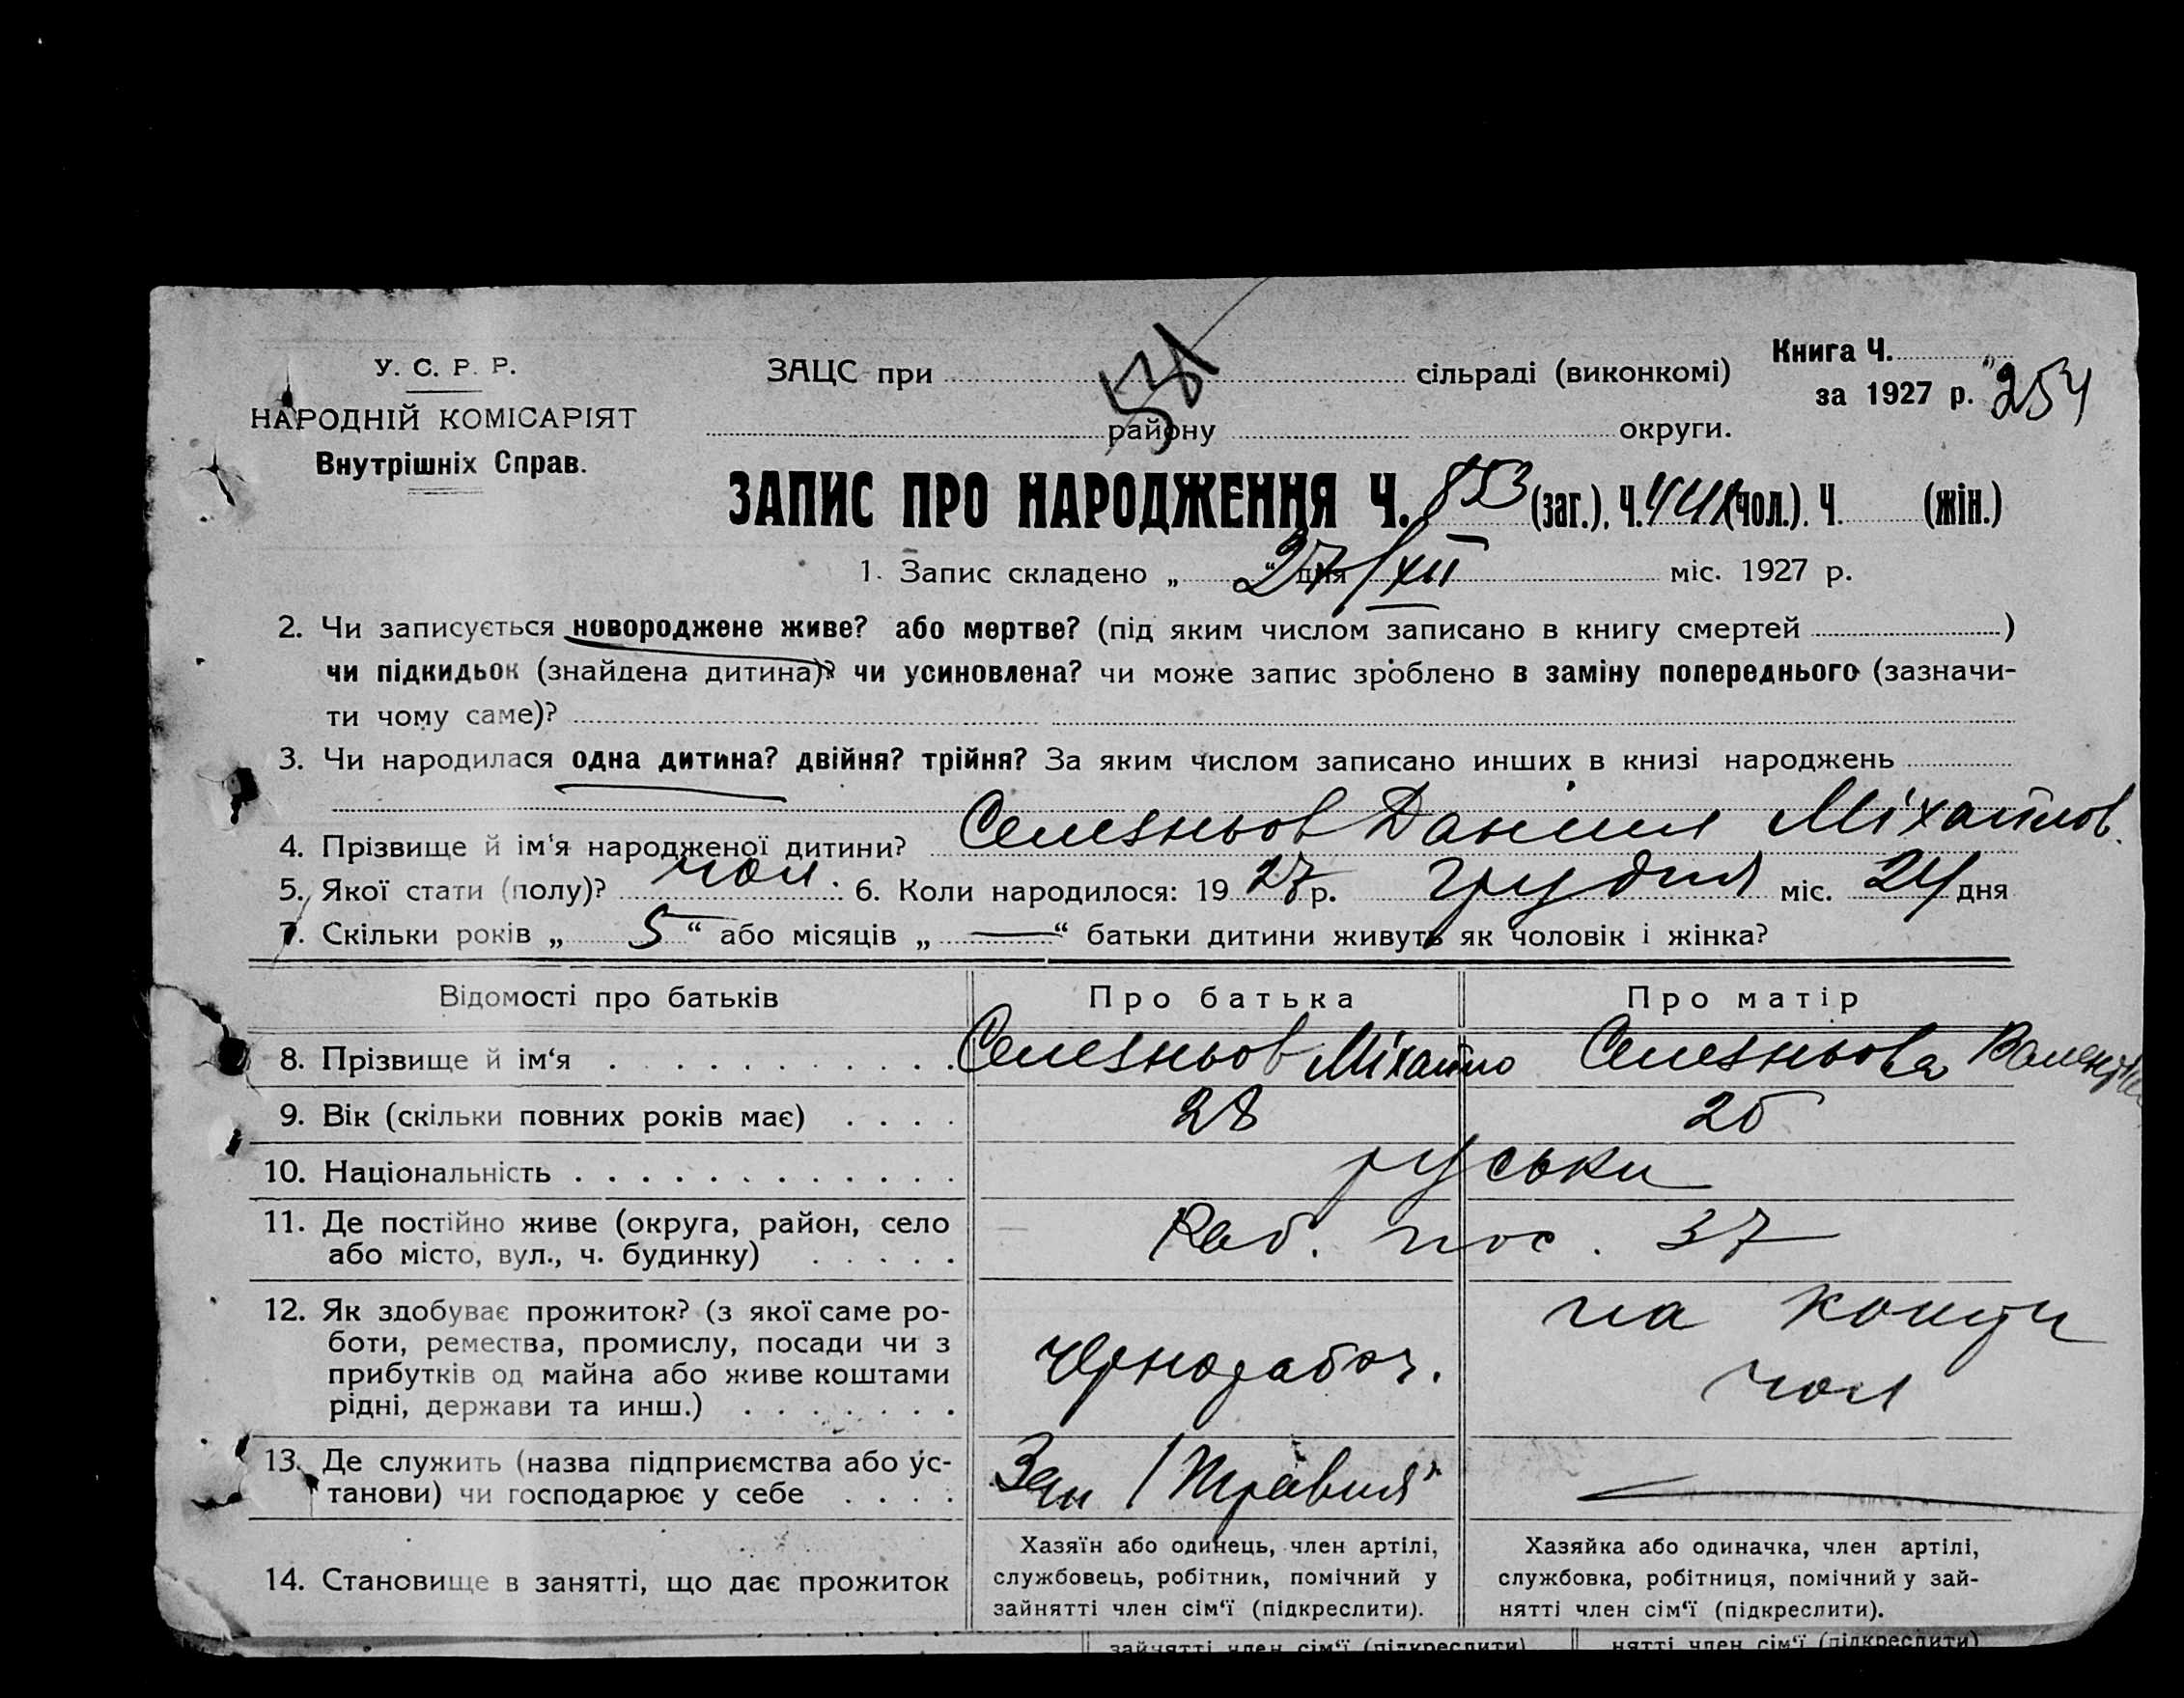 У. С. Р. Р.
НАРОДНІЙ КОМІСАРІЯТ
Внутрішніх Справ.
ЗАЦС при сільраді (виконкомі)
району округи.
Книга Ч.
за 1927 р. 254
ЗАПИС ПРО НАРОДЖЕННЯ Ч. 853 (заг.). Ч. 441 (чол.). Ч. (жін.)
1. Запис складено „ 27 “ дня / XII міс. 1927 р.
2. Чи записується новороджене живе? або мертве? (під яким числом записано в книгу смертей )
чи підкидьок (знайдена дитина)? чи усиновлена? чи може запис зроблено в заміну попереднього (зазначи-
ти чому саме)?
3. Чи народилася одна дитина? двійня? трійня? За яким числом записано инших в книзі народжень
4. Прізвище й ім'я народженої дитини? Селезньов Даниил Міхайлов.
5. Якої стати (полу)? чол. 6. Коли народилося: 19 27 р. грудня міс. 24 дня
7. Скільки років „ 5 “ або місяців „ — “ батьки дитини живуть як чоловік і жінка?
Відомості про батьків Про батька Про матір
8. Прізвище й ім'я Селезньов Міхайло Селезньова
9. Вік (скільки повних років має) 28 25
10. Національність руськи
11. Де постійно живе (округа, район, село
або місто, вул., ч. будинку) Раб. пос. 37
12. Як здобуває прожиток? (з якої саме ро-
боти, ремества, промислу, посади чи з
прибутків од майна або живе коштами
рідні, держави та инш.) чернорабоч. на кошти
чол
13. Де служить (назва підприємства або ус-
танови) чи господарює у себе
14. Становище в занятті, що дає прожиток
Хазяїн або одинець, член артілі,
службовець, робітник, помічний у
зайнятті член сім'ї (підкреслити).
Хазяйка або одиначка, член артілі,
службовка, робітниця, помічний у зай-
нятті член сім'ї (підкреслити).
зайнятті член сім'ї (підкреслити) нятті член сім'ї (підкреслити)